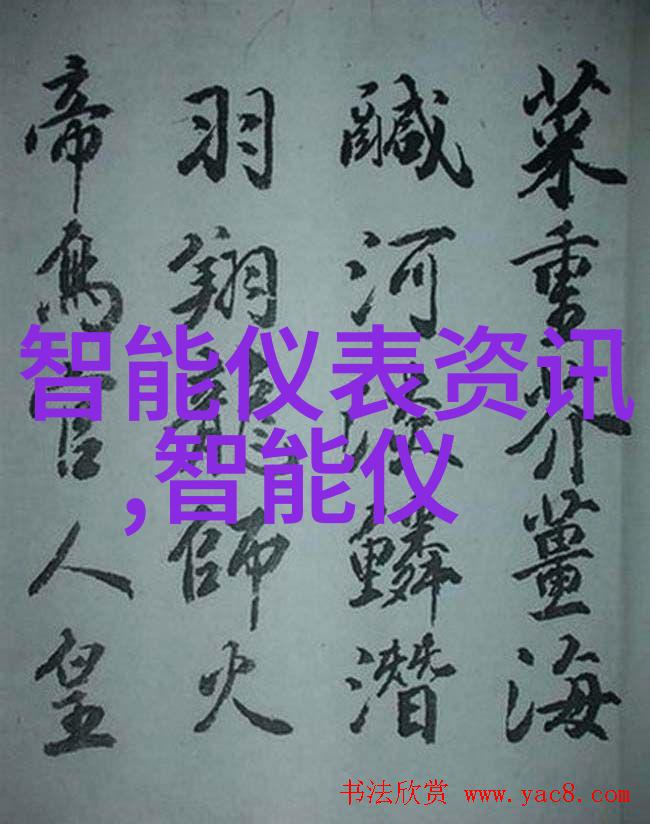 菜重芥薑海
鹹河淡鱗潛
羽翔龍師火
帝鳥官人皇
智能仪表资讯
,智能仪
书法欣赏 www.yac8.com